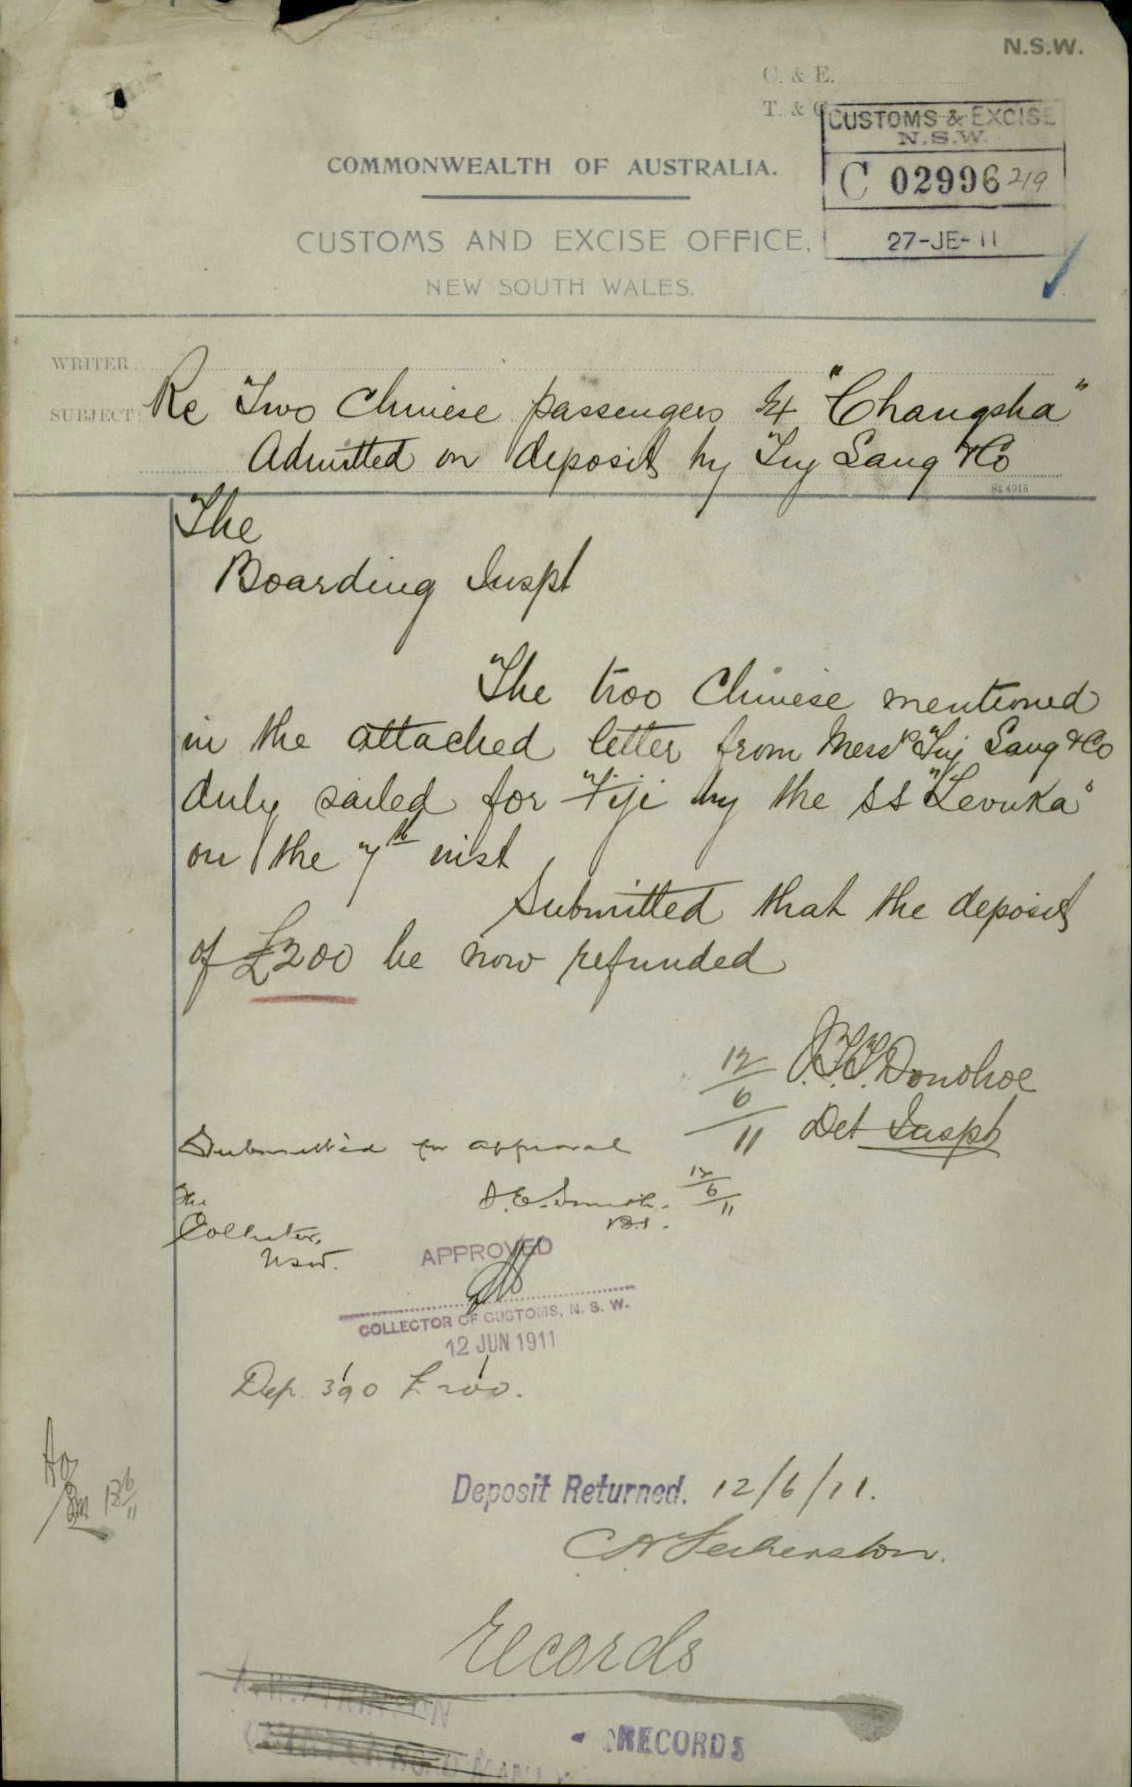 N.S.W.
C. & E.
T. & C
CUSTOMS & EXCISE
N.S.W.
C 02996 219
27-JE-11
COMMONWEALTH OF AUSTRALIA.
CUSTOMS AND EXCISE OFFICE,
NEW SOUTH WALES.
WRITER
SUBJECT: Re Two Chinese passengers "Changsha"
Admitted on deposit by Tiy Sang & Co
The
Boarding Inspt
The two Chinese mentioned
in the attached letter from Messrs Tiy Sang & Co
duly sailed for Fiji by the SS "Levuka"
on the 7th inst
Submitted that the deposit
of £200 be now refunded
12/6/11 Donohoe
Det Inspt
Submitted for approval
The
Collector,
NSW.
12/6/11
APPROVED
COLLECTOR OF CUSTOMS, N. S. W.
12 JUN 1911
Dep. 390 £200.
Deposit Returned. 12/6/11.
Records
RECORDS